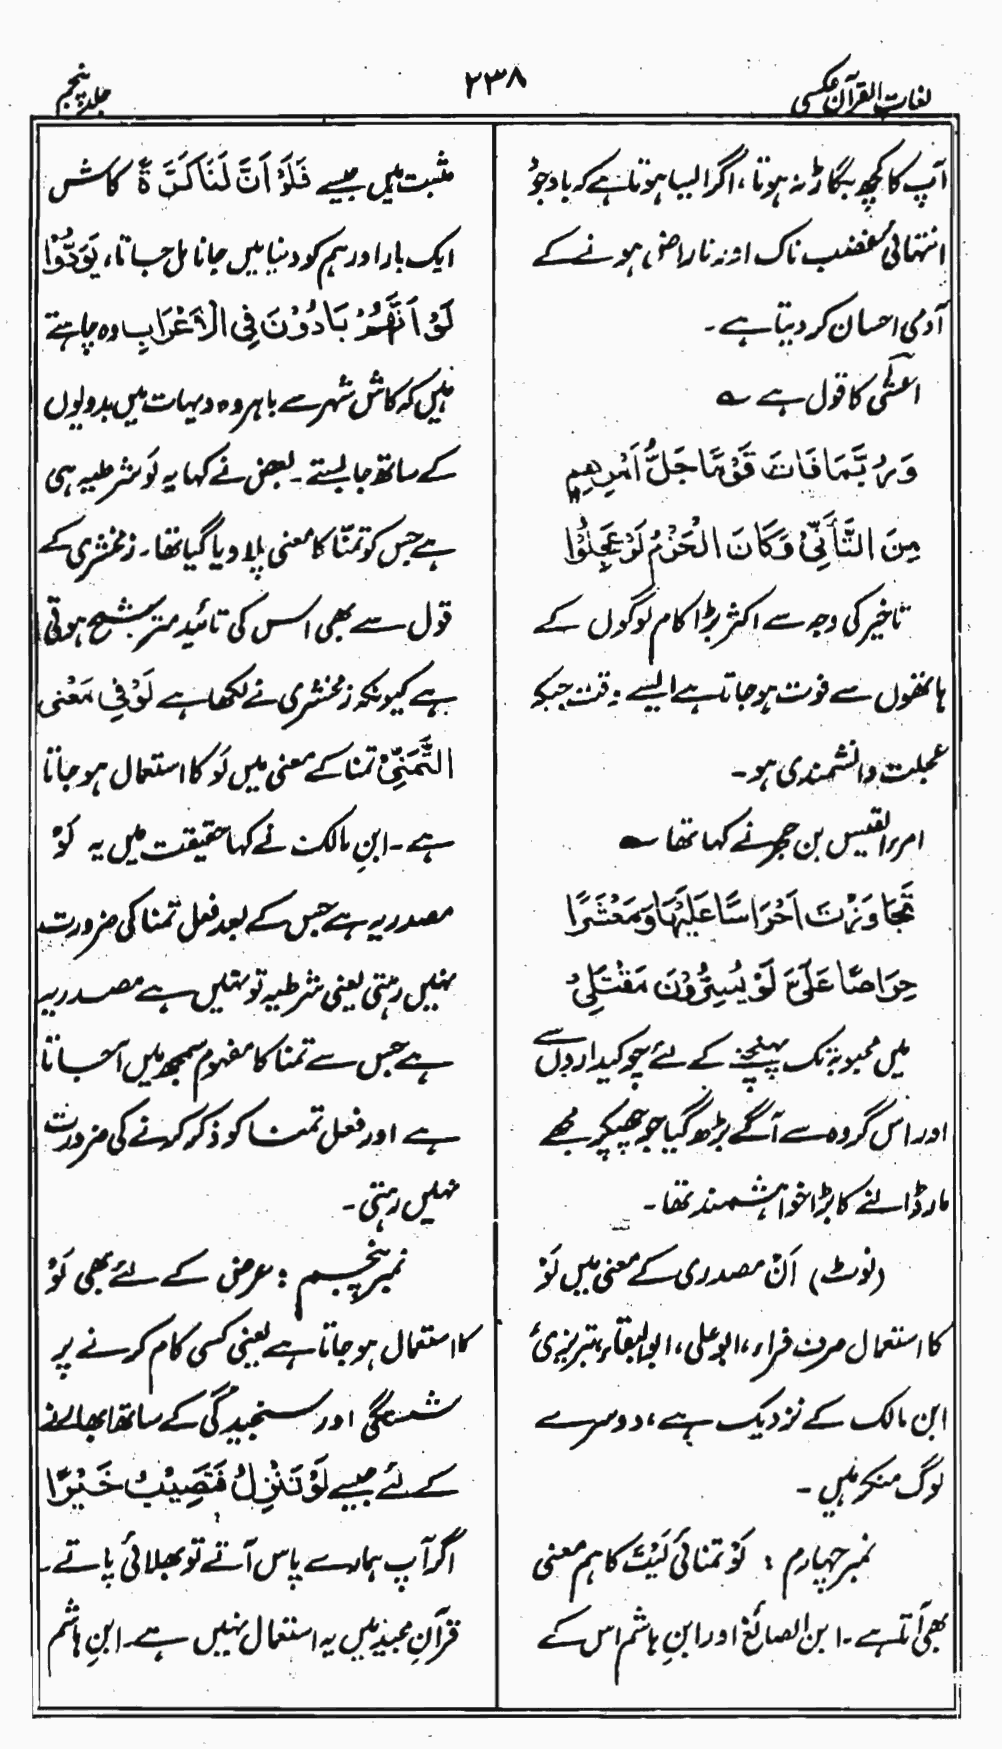 لغات القرآن عکسی
۲۳۸
جلد پنجم
آپ کا کچھ بگاڑ نہ ہوتا، اگر ایسا ہوتا ہے کہ باوجود
انتہائی غضب ناک اور ناراض ہونے کے
آدمی احسان کر دیتا ہے۔
اعشٰی کا قول ہے ؎
وَرُبَّمَا فَاتَ قَوْمًا جَلُّ اَمْرِهِم
مِنَ التَّأَنِّيْ وَكَانَ الْحَزْمُ لَوْ عَجِلُوْا
تاخیر کی وجہ سے اکثر بڑا کام لوگوں کے
ہاتھوں سے فوت ہو جاتا ہے ایسے وقت جبکہ
عجلت دانشمندی ہو۔
امرء القیس بن حجر نے کہا تھا ؎
تَجَاوَزْتُ اَحْرَاسًا عَلَيْهَا وَمَعْشَرًا
حِرَاصًا عَلَيَّ لَوْ يُسِرُّوْنَ مَقْتَلِيْ
میں محبوبہ تک پہنچنے کے لئے چوکیداروں سے
اور اس گروہ سے آگے بڑھ گیا جو چھپکر مجھے
مار ڈالنے کا بڑا خواہشمند تھا۔
(نوٹ) اَنْ مصدری کے معنی میں لَوْ
کا استعمال صرف فراء، ابو علی، ابو البقاء، تبریزی
ابن مالک کے نزدیک ہے، دوسرے
لوگ منکر ہیں۔
نمبر چہارم : لَوْ تمنائی لَیْتَ کا ہم معنی
بھی آتا ہے۔ ابن الصائغ اور ابنِ ہاشم اس کے
مثبت ہیں جیسے فَلَوْ اَنَّ لَنَا كَرَّةً کاش
ایک بار اور ہم کو دنیا میں جانا مل جاتا، يَوَدُّوْا
لَوْ اَنَّهُمْ بَادُوْنَ فِي الْاَعْرَابِ وہ چاہتے
ہیں کہ کاش شہر سے باہر وہ دیہات میں بدویوں
کے ساتھ جا بستے۔ بعض نے کہا یہ لَو شرطیہ ہی
ہے جس کو تمنّا کا معنی پلا دیا گیا تھا۔ زمخشری کے
قول سے بھی اس کی تائید مترشح ہوتی
ہے کیونکہ زمخشری نے لکھا ہے لَوْ فِي مَعْنى
التَّمَنِّيْ تمنا کے معنی میں لَو کا استعمال ہو جاتا
ہے۔ ابنِ مالک نے کہا حقیقت میں یہ لَوْ
مصدریہ ہے جس کے بعد فعل تمنا کی ضرورت
نہیں رہتی یعنی شرطیہ تو نہیں ہے مصدریہ
ہے جس سے تمنا کا مفہوم سمجھ میں آ جاتا
ہے اور فعل تمنا کو ذکر کرنے کی ضرورت
نہیں رہتی۔
نمبر پنجم : عرض کے لئے بھی لَوْ
کا استعمال ہو جاتا ہے یعنی کسی کام کرنے پر
شستگی اور سنجیدگی کے ساتھ ابھارنے
کے لئے جیسے لَوْ تَنْزِلُ فَتُصِيْبُ خَيْرًا
اگر آپ ہمارے پاس آتے تو بھلائی پاتے۔
قرآنِ مجید میں یہ استعمال نہیں ہے۔ ابنِ ہاشم